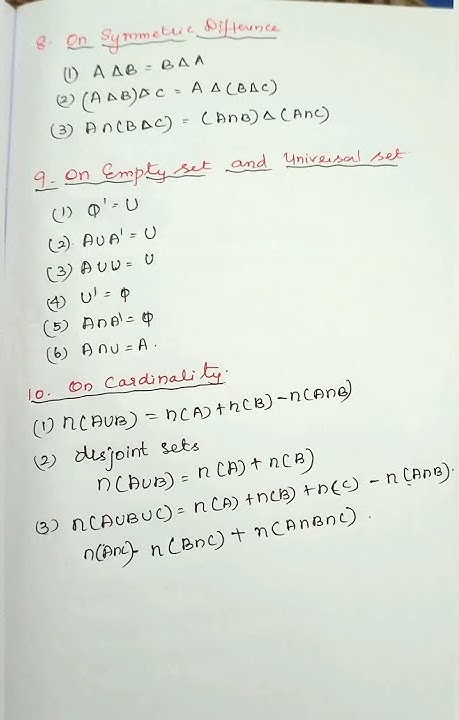 8. On Symmetric Difference
(1) A Δ B = B Δ A
(2) (A Δ B) Δ C = A Δ (B Δ C)
(3) A ∩ (B Δ C) = (A ∩ B) Δ (A ∩ C)
9. On Empty set and Universal set
(1) Φ' = U
(2) A ∪ A' = U
(3) A ∪ U = U
(4) U' = Φ
(5) A ∩ A' = Φ
(6) A ∩ U = A.
10. On Cardinality.
(1) n(A∪B) = n(A) + n(B) - n(A∩B)
(2) disjoint sets
n(A∪B) = n(A) + n(B)
(3) n(A∪B∪C) = n(A) + n(B) + n(C) - n(A∩B).
n(A∩C) - n(B∩C) + n(A∩B∩C).